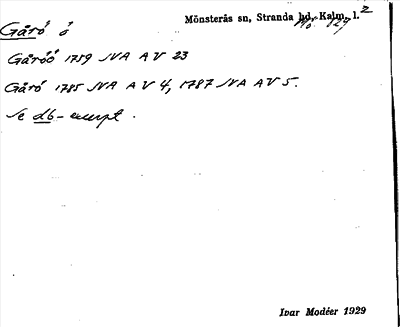 Gårö ö Mönsterås sn, Stranda hd, Kalm. l. 2
Gåröö 1759 JVA AV 23
Gårö 1785 JVA AV 4, 1787 JVA AV 5.
Se db-excerpt.
Ivar Modéer 1929